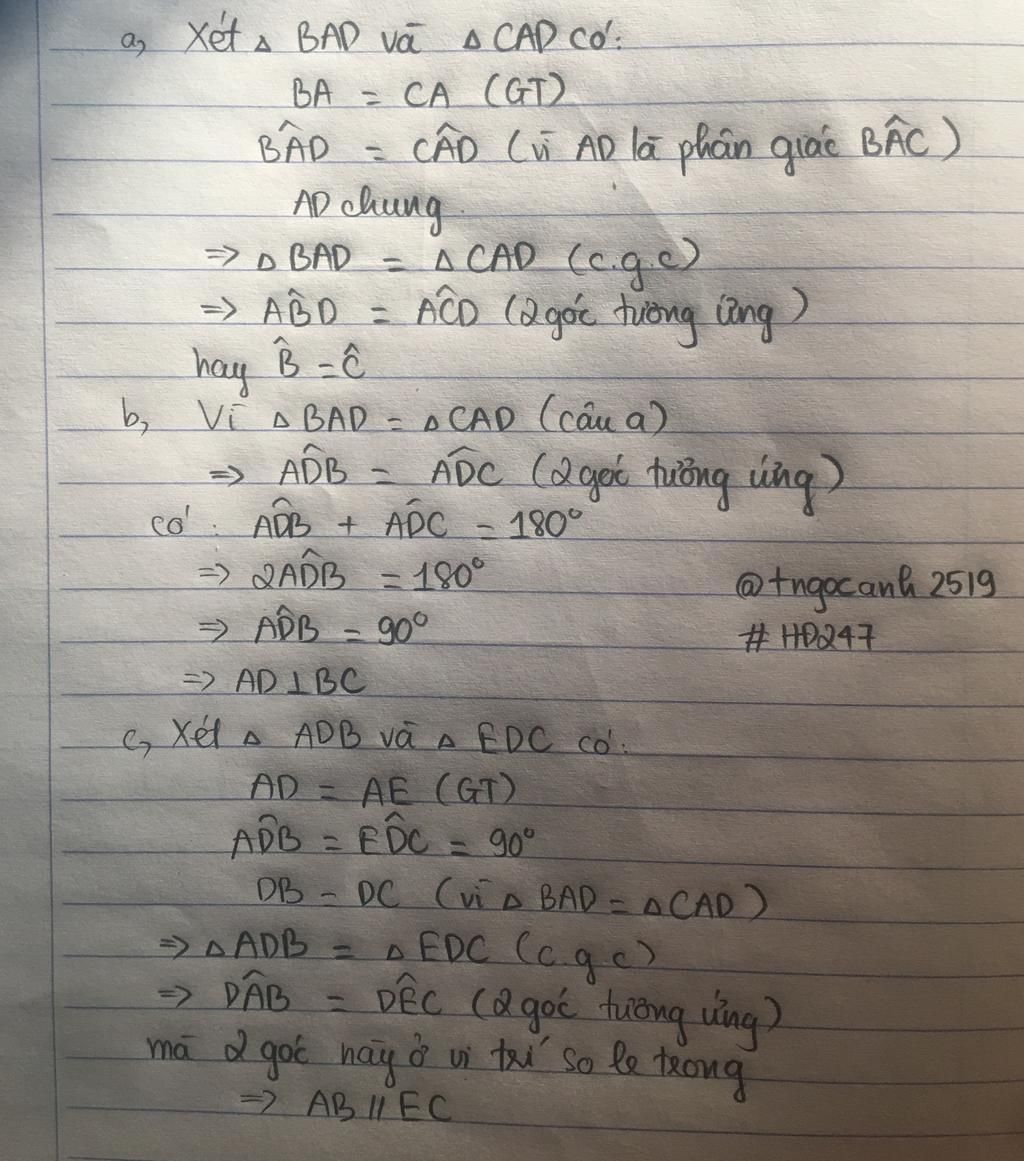 a, Xét ∆ BAD và ∆ CAD có:
BA = CA (GT)
BÂD = CÂD (vì AD là phân giác BÂC)
AD chung
=> ∆ BAD = ∆ CAD (c.g.c)
=> AB̂D = AĈD (2 góc tương ứng)
hay B̂ = Ĉ
b, Vì ∆ BAD = ∆ CAD (câu a)
=> AD̂B = AD̂C (2 góc tưởng ứng)
có: AD̂B + AD̂C = 180°
=> 2AD̂B = 180°
=> AD̂B = 90°
@tngocanh2519
#HĐ247
=> AD ⊥ BC
c, Xét ∆ ADB và ∆ EDC có:
AD = AE (GT)
AD̂B = ED̂C = 90°
DB = DC (vì ∆ BAD = ∆ CAD)
=> ∆ ADB = ∆ EDC (c.g.c)
=> DÂB = DÊC (2 góc tương ứng)
mà 2 góc này ở vị trí so le trong
=> AB // EC